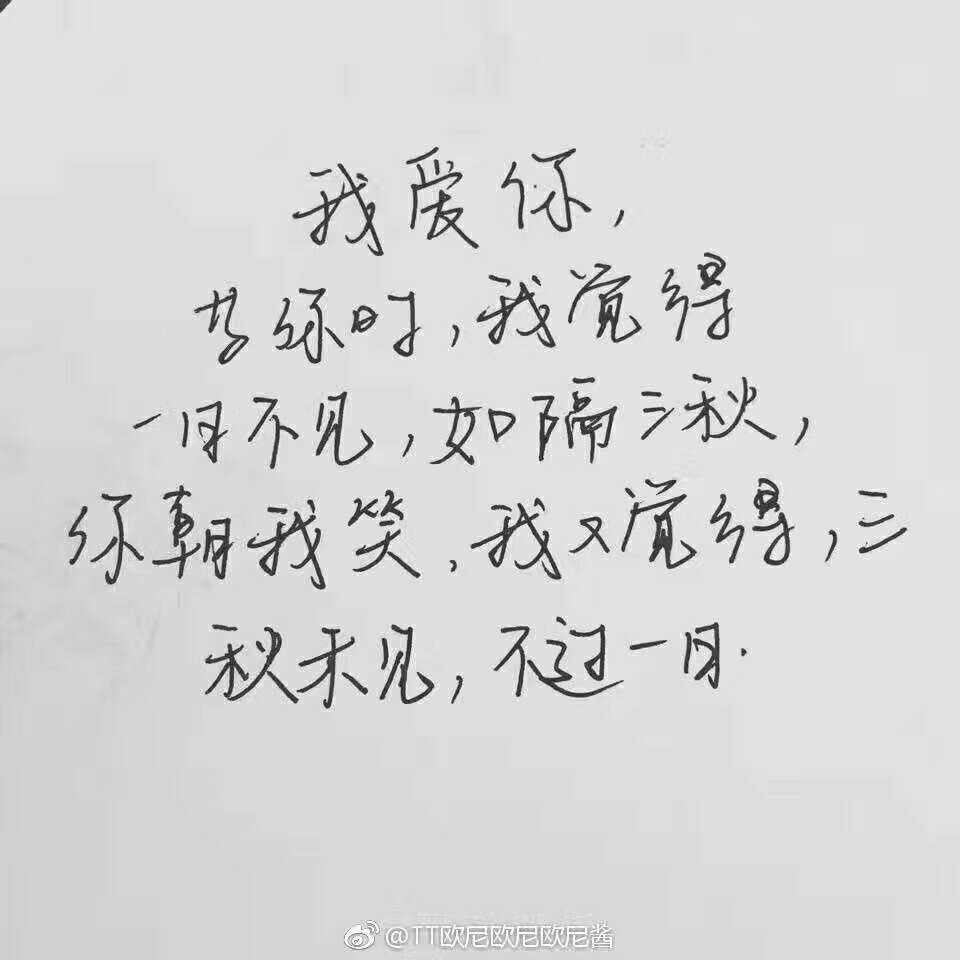 我爱你,
等你时,我觉得
一日不见,如隔三秋,
你朝我笑,我又觉得,三
秋未见,不过一日.
@TT欧尼欧尼欧尼酱